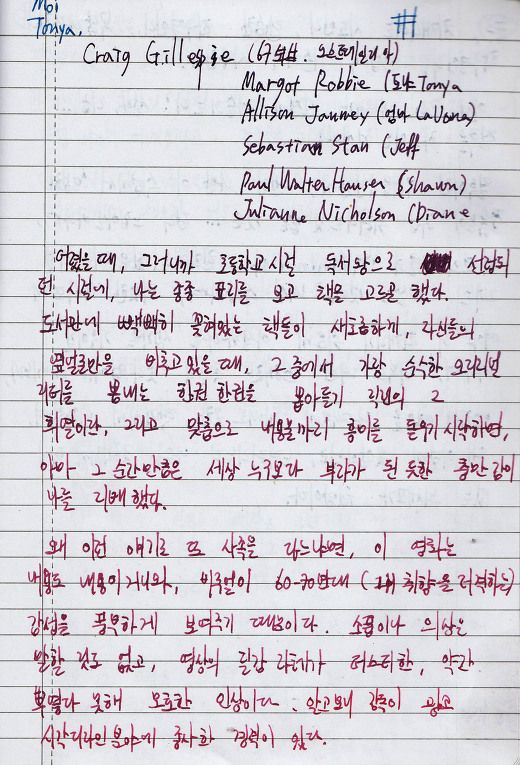 Moi
Tonya.
#
Craig Gillespie (67년생. 오스트레일리아)
Margot Robbie (토냐 Tonya
Allison Janney (엄마 LaVona)
Sebastian Stan (Jeff
Paul Walter Hauser (Shawn)
Julianne Nicholson (Diane
어렸을 때, 그러니까 초등학교 시절 독서왕으로 선정되
던 시절에, 나는 종종 표지를 보고 책을 고르곤 했다.
도서관에 빽빽히 꽂혀있는 책들이 새초롬하게, 자신들의
옆얼굴만을 비추고 있을 때, 그 중에서 가장 순수한 오리지널
리티를 뽐내는 한권 한권을 뽑아들기 직전의 그
희열이란, 그리고 맞춤으로 내용물까지 흥미를 돋우기 시작하면,
아마 그 순간만큼은 세상 누구보다 부자가 된 듯한 충만감이
나를 지배했다.
왜 이런 얘기로 또 사족을 다느냐면, 이 영화는
내용도 내용이거니와, 비주얼이 60-70년대 (내 취향을 저격하는)
감성을 풍부하게 보여주기 때문이다. 소품이나 의상은
말할 것도 없고, 영상의 질감 자체가 더스티한, 약간
뿌옇다 못해 오묘한 인상이다. 알고보니 감독이 광고
시각디자인 분야에 종사한 경력이 있다.